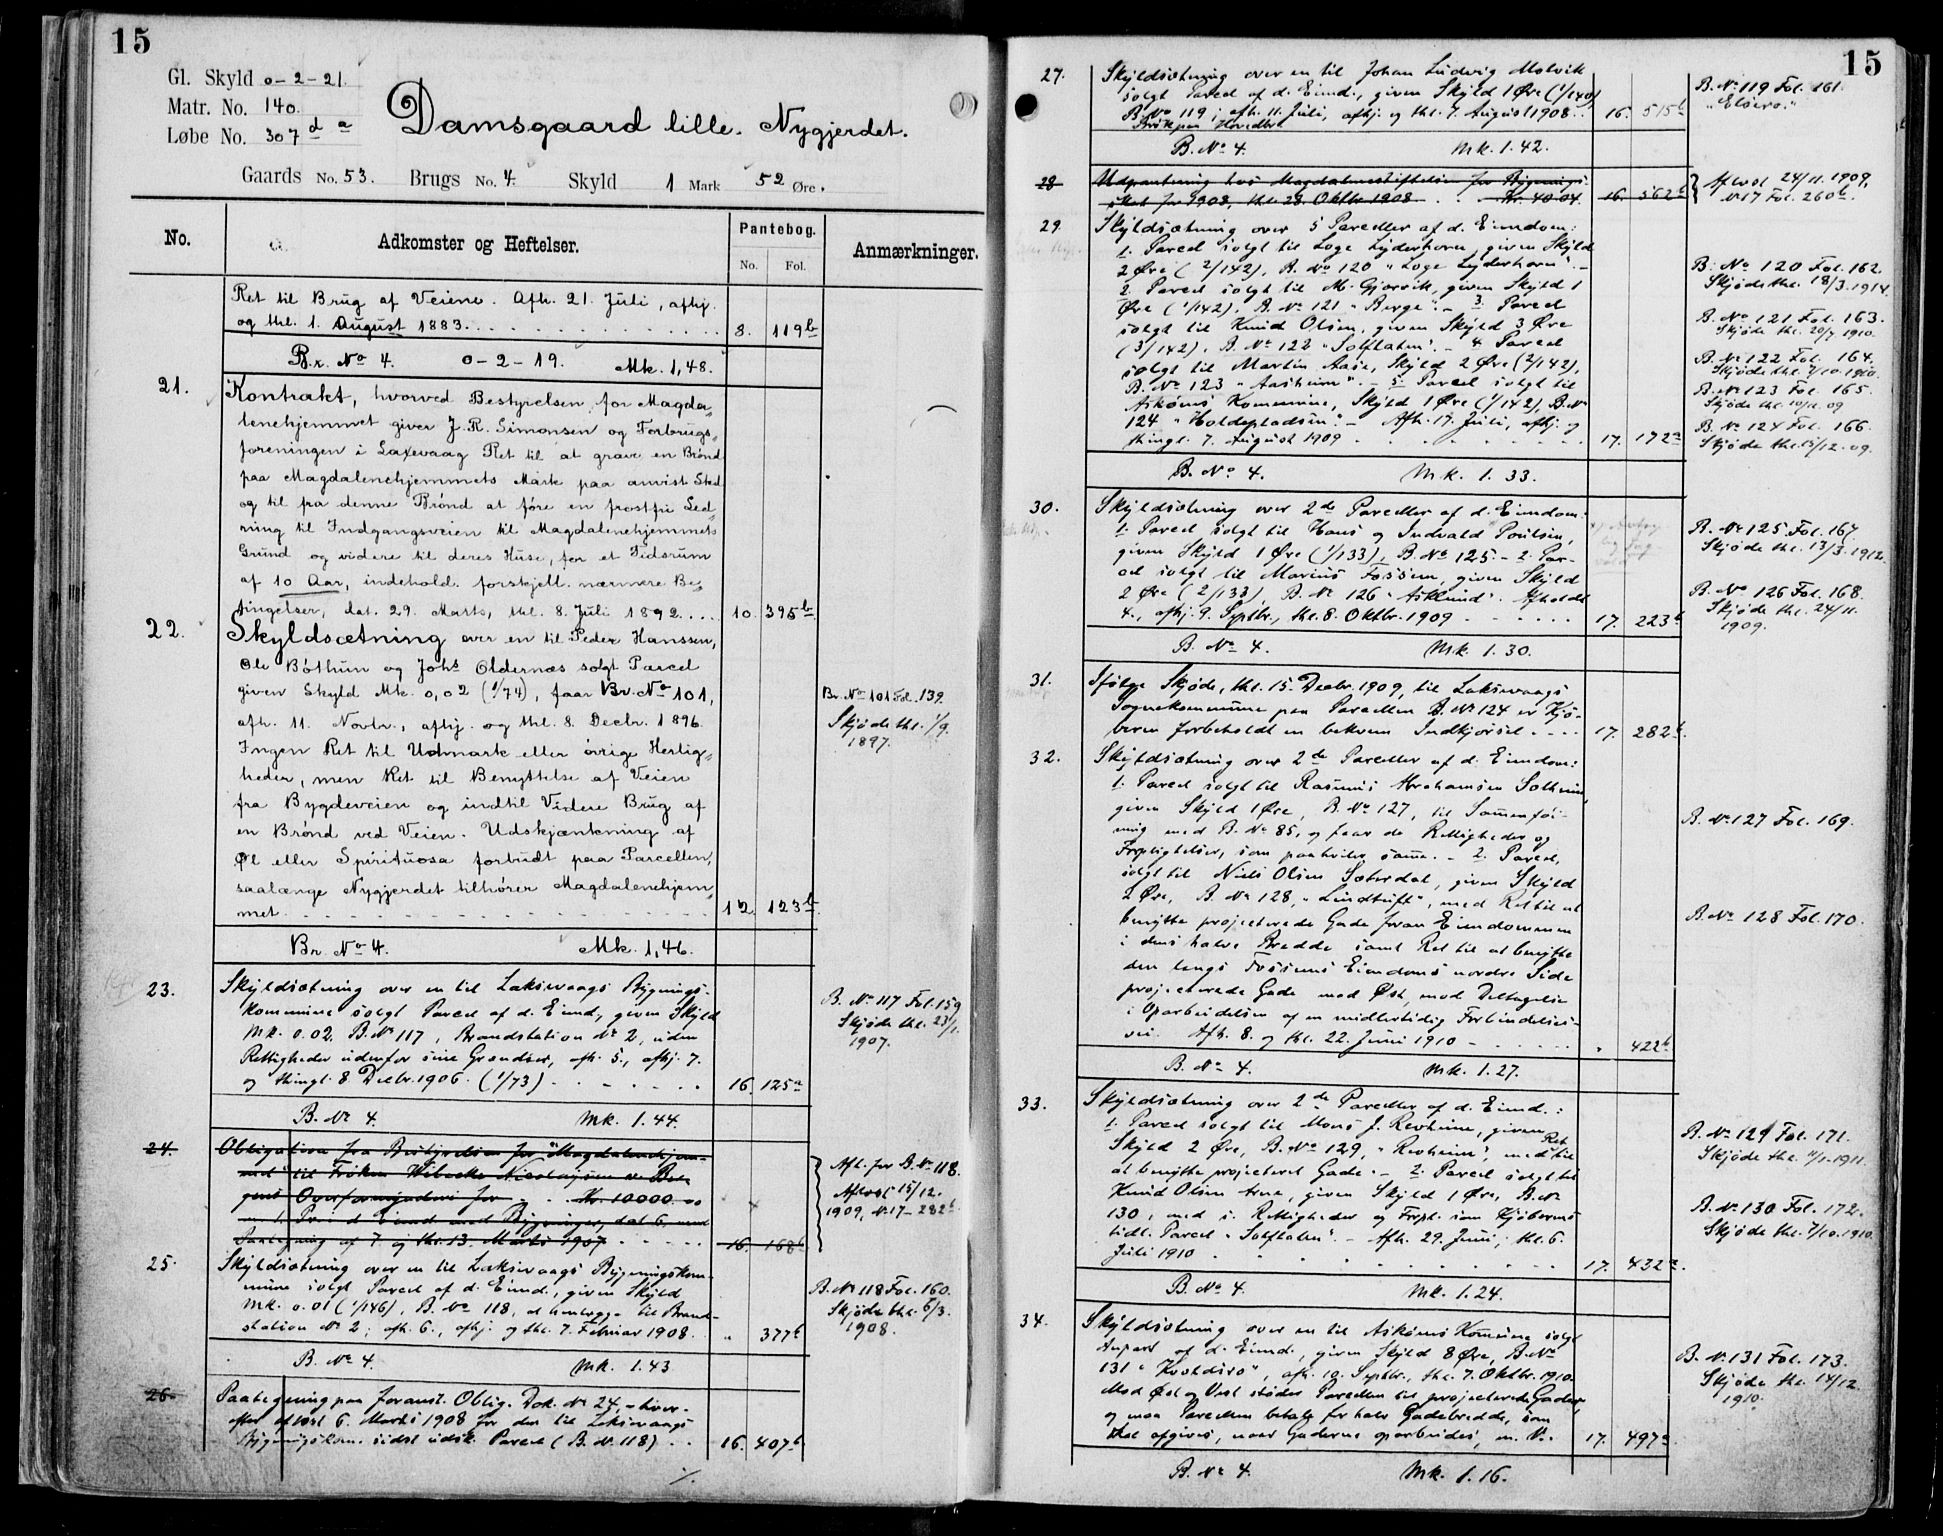 15
Gl. Skyld 0-2-21.
Matr. No. 140.
Løbe No. 307 d a
Damsgaard lille. Nygjerdet.
Gaards No. 53. Brugs No. 4. Skyld 1 Mark 52 Øre.
No. Adkomster og Heftelser. Pantebog. No. Fol. Anmærkninger.
Ret til Brug af Veiene. Afh. 21. Juli, afhj.
og thl. 1. August 1883. 8. 119b
Br. No 4. 0-2-19. Mk. 1,48.
21. Kontrakt, hvorved Bestyrelsen for Magda„
lenehjemmet giver J. R. Simonsen og Forbrugs„
foreningen i Laxevaag Ret til at grave en Brønd
paa Magdalenehjemmets Mark paa anvist Sted
og til fra denne Brønd at føre en frostfri Led„
ning til Indgangsveien til Magdalenehjemmets
Grund og videre til deres Huse, for et Tidsrum
af 10 Aar, indehold. forskjell. nærmere Be„
tingelser, dat. 29. Marts, thl. 8. Juli 1892.... 10. 395b
22. Skyldsætning over en til Peder Hanssen,
Ole Bøthun og Johs Oldernæs solgt Parcel
given Skyld Mk. 0,02 (1/74), faar Br. No 101, Br. No 101 Fol. 139.
afh. 11. Novbr., afhj. og thl. 8. Decbr. 1896. Skjøde thl. 1/9.
Ingen Ret til Udmark eller øvrige Herlig„ 1897.
heder, men Ret til Benyttelse af Veien
fra Bygdeveien og indtil Videre Brug af
en Brønd ved Veien. Udskjænkning af
Øl eller Spirituosa forbudt paa Parcellen,
saalænge Nygjerdet tilhører Magdalenehjem„
met 12. 123b
Br. No 4. Mk. 1,46.
23. Skyldsætning over en til Laksevaags Bygnings-
kommune solgt Parcel af d. Eiend., given Skyld B. No 117 Fol. 159
Mk. 0.02. B. No 117, Brandstation No 2, uden Skjøde thl. 23/1.
Rettigheder udenfor sine Grændser, afh. 5., afhj. 7. 1907.
og thingl. 8. Decbr. 1906. (1/73) 16. 125a
B. No 4. Mk. 1.44.
24. Obligation fra Bestyrelsen for "Magdalenehjem-
met" til Frøken Wibecke Nicolaysen v. Ber- Afl. for B. No 118.
gens Overformynderi for Kr. 10000.00 Aflæst 15/12.
m. 1. Pri. i d. Eiend. med Bygninger, dat. 6., med 1909, No 17 - 282b
Paategning af 7. og thl. 13. Marts 1907 16. 168b
25. Skyldsætning over en til Laksevaags Bygningskom-
mune solgt Parcel af d. Eiend., given Skyld B. No 118 Fol. 160.
Mk. 0.01 (1/146), B. No 118, at henlægge til Brand- Skjøde thl. 6/3.
station No 2; afh. 6., afhj. og thl. 7. Februar 1908. " 377b 1908.
B. No 4. Mk. 1.43
26. Paategning paa foranst. Oblig. Dok. No 24, hvor-
efter aflæst 6. Marts 1908 for den til Laksevaags
Bygningskom. sidst udsk. Parcel (B. No 118) 16. 407b
15
27. Skyldsætning over en til Johan Ludvig Molvik
solgt Parcel af d. Eiend., given Skyld 1 Øre (1/140) B. No 119 Fol. 161.
B. No 119; afh. 11. Juli, afhj. og thl. 7. August 1908. 16. 515b
B. No 4. Mk. 1.42.
28 Udpantning hos Magdalenestiftelsen for Bygnings- Aflæst 24/11. 1909,
skat for 1908, thl. 28 Oktbr. 1908 Kr. 40.04. 16. 562b No 17 Fol. 260b.
29. Skyldsætning over 5 Parceller af d. Eiendom:
1. Parcel solgt til Loge Lyderhorn, given Skyld
2 Øre (2/142), B. No 120 "Loge Lyderhorn". - B. No 120 Fol. 162.
2. Parcel solgt til M. Gjørvik, given Skyld 1 Skjøde thl. 18/3. 1914.
Øre (1/142), B. No 121 "Berge". - 3. Parcel B. No 121 Fol. 163.
solgt til Knud Olsen, given Skyld 3 Øre Skjøde thl. 20/7 1910.
(3/142), B. No 122 "Solflaten". - 4. Parcel B. No 122 Fol. 164.
solgt til Martin Aase, Skyld 2 Øre (2/142), Skjøde thl. 7/10. 1910.
B. No 123 "Aasheim". - 5. Parcel solgt til B. No 123 Fol. 165.
Askøens Kommune, Skyld 1 Øre (1/142), B. No Skjøde thl. 10/12. 09
124 "Holdepladsen". - Afh. 17. Juli, afhj. og B. No 124 Fol. 166.
thingl. 7. August 1909 17. 172a Skjøde thl. 15/12. 09.
B. No 4. Mk. 1.33.
30. Skyldsætning over 2de Parceller af d. Eiendom:
1. Parcel solgt til Hans og Indvald Poulsen, B. No 125 Fol. 167.
given Skyld 1 Øre (1/133), B. No 125. - 2. Par- Skjøde thl. 13/3. 1912.
cel solgt til Marius Fossum, given Skyld
2 Øre (2/133), B. No 126 "Asklund". Afholdt B. No 126 Fol. 168.
4., afhj. 9. Septbr., thl. 8. Oktbr. 1909 17. 223b Skjøde thl. 24/11. 1909.
B. No 4. Mk. 1.30.
31. Ifølge Skjøde, thl. 15. Decbr. 1909, til Laksevaags
Sognekommune paa Parcellen B. No 124 er Kjø-
beren forbeholdt en bekvem Indkjørsel 17. 282b.
32. Skyldsætning over 2de Parceller af d. Eiendom:
1. Parcel solgt til Rasmus Abrahamsen Solheim,
given Skyld 1 Øre, B. No 127, til Sammenføi- B. No 127 Fol. 169.
ning med B. No 85, og faar de Rettigheder og
Forpligtelser, som paahviler samme. - 2. Parcel,
solgt til Niels Olsen Sæterdal, given Skyld
2 Øre, B. No 128, "Lindtuft", med Ret til at B. No 128 Fol. 170.
benytte projecterede Gade foran Eiendommen
i dens halve Bredde samt Ret til at benytte
den langs Fossums Eiendoms nordre Side
projecterede Gade mod Øst, mod Deltagelse
i Oparbeidelsen af en midlertidig Forbindelses-
vei. Afh. 8. og thl. 22. Juni 1910 " 422b
B. No 4. Mk. 1.27.
33. Skyldsætning over 2de Parceller af d. Eiend.:
1. Parcel solgt til Mons J. Revheim, given B. No 129 Fol. 171.
Skyld 2 Øre, B. No 129, "Revheim", med Ret til Skjøde thl. 11/1. 1911.
at benytte projecteret Gade. - 2. Parcel solgt til
Knud Olsen Arne, given Skyld 1 Øre, B. No B. No 130 Fol. 172.
130, med s. Rettigheder og Forpl. som Kjøberens Skjøde thl. 7/10. 1910.
tidl. Parcel "Solflaten". - Afh. 29. Juni, thl. 6.
Juli 1910 17. 432a.
B. No 4. Mk. 1.24.
34. Skyldsætning over en til Askøens Kommune solgt
Anpart af d. Eiend., given Skyld 8 Øre, B. No B. No 131 Fol. 173.
131, afh. 10. Septbr., thl. 7. Oktbr. 1910. Skjøde thl. 14/12.
Mod Øst og Vest støder Parcellen til projecterede Gader, 1910.
og maa Parcellen betale for halv Gadebredde, som
skal afgives, naar Gaderne oparbeides, m. V. 17. 497a
B. No 4. Mk. 1.16.